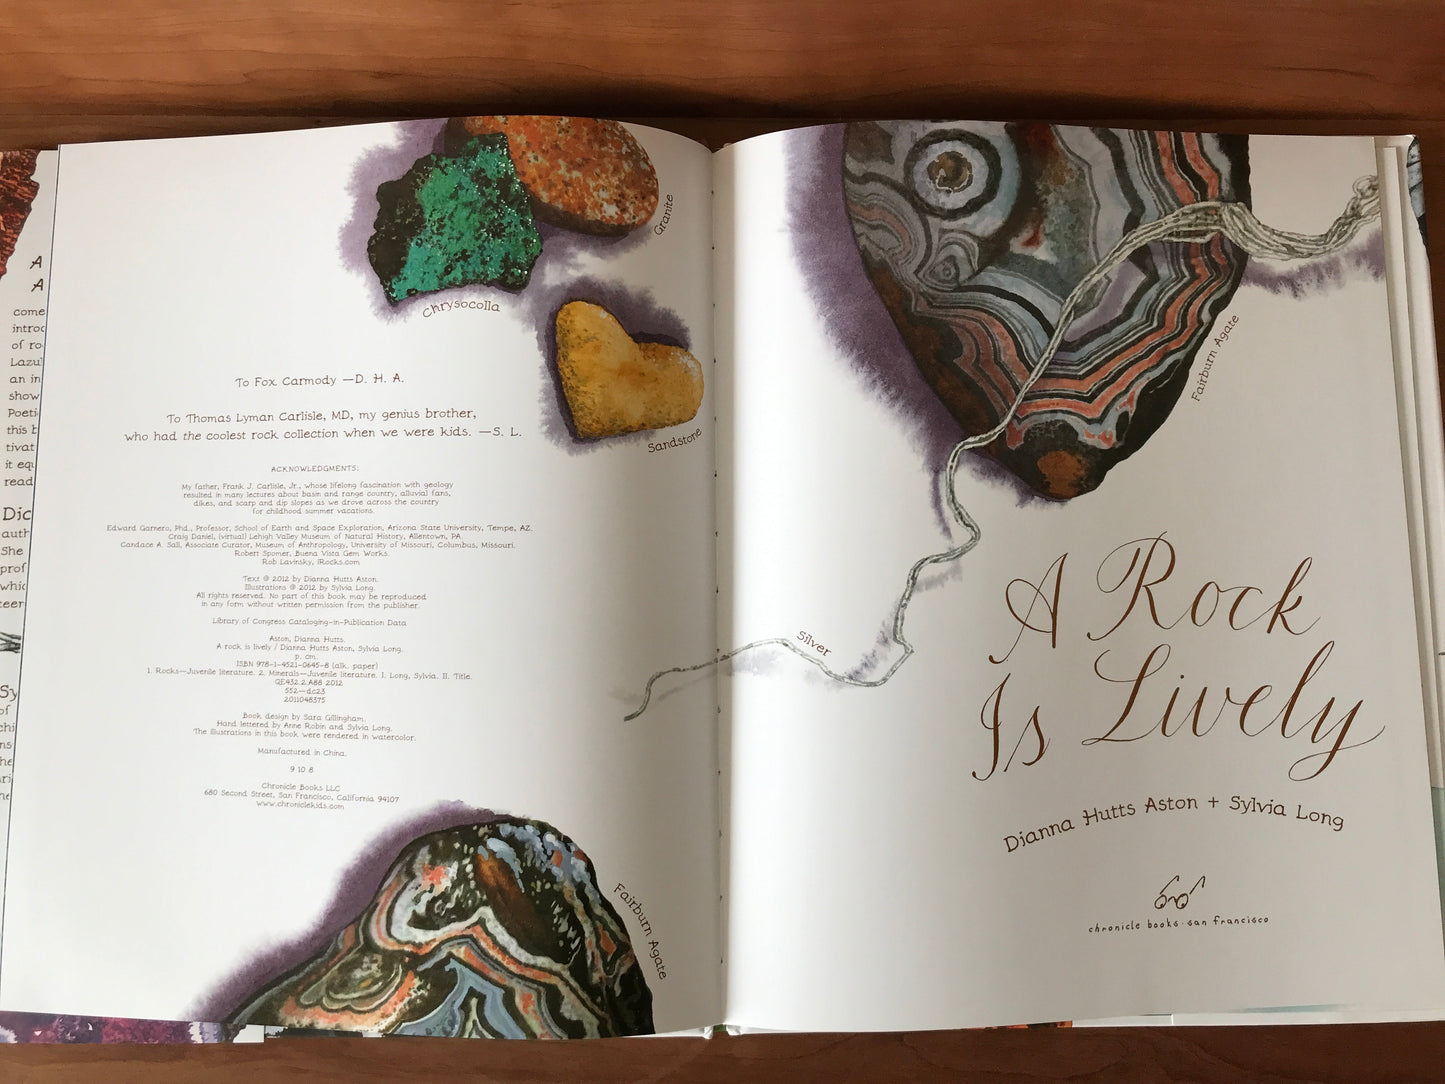 A
A
come
introd
of ro
Lazul
an in
show
Poeti
this b
tivat
it equ
read
Dic
auth
She
prof
whic
teer
Sy
of
chi
ns
he
ari
he
Granite
Chrysocolla
Sandstone
To Fox Carmody —D. H. A.
To Thomas Lyman Carlisle, MD, my genius brother,
who had the coolest rock collection when we were kids. —S. L.
ACKNOWLEDGMENTS:
My father, Frank J. Carlisle, Jr., whose lifelong fascination with geology
resulted in many lectures about basin and range country, alluvial fans,
dikes, and scarp and dip slopes as we drove across the country
for childhood summer vacations.
Edward Garnero, Phd., Professor, School of Earth and Space Exploration, Arizona State University, Tempe, AZ.
Craig Daniel, (virtual) Lehigh Valley Museum of Natural History, Allentown, PA.
Candace A. Sall, Associate Curator, Museum of Anthropology, University of Missouri, Columbus, Missouri.
Robert Spomer, Buena Vista Gem Works.
Rob Lavinsky, iRocks.com
Text © 2012 by Dianna Hutts Aston.
Illustrations © 2012 by Sylvia Long.
All rights reserved. No part of this book may be reproduced
in any form without written permission from the publisher.
Library of Congress Cataloging-in-Publication Data
Aston, Dianna Hutts.
A rock is lively / Dianna Hutts Aston, Sylvia Long.
p. cm.
ISBN 978-1-4521-0645-8 (alk. paper)
1. Rocks—Juvenile literature. 2. Minerals—Juvenile literature. I. Long, Sylvia. II. Title.
QE432.2.A88 2012
552—dc23
2011048375
Book design by Sara Gillingham.
Hand lettered by Anne Robin and Sylvia Long.
The illustrations in this book were rendered in watercolor.
Manufactured in China.
9 10 8
Chronicle Books LLC
680 Second Street, San Francisco, California 94107
www.chroniclekids.com
Fairburn Agate
Fairburn Agate
Silver
A Rock
Is Lively
Dianna Hutts Aston + Sylvia Long
chronicle books · san francisco